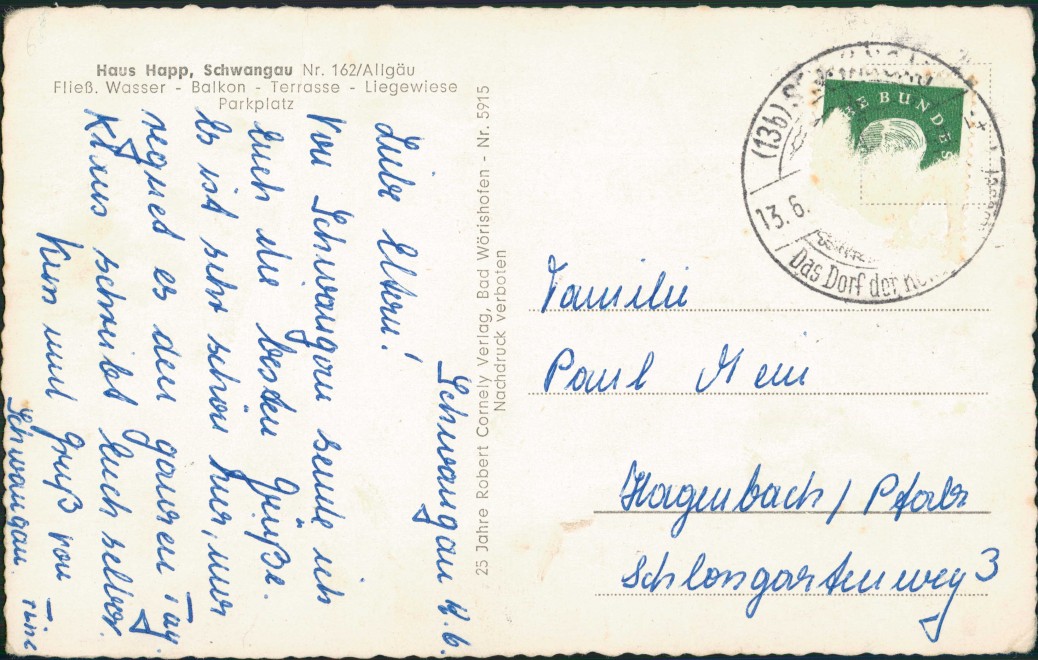 Haus Happ, Schwangau Nr. 162/Allgäu
Fließ. Wasser - Balkon - Terrasse - Liegewiese
Parkplatz
Schwangau
Liebe Eltern!
Von Schwangau sende ich
Euch die besten Grüße.
Es ist sehr schön hier, nur
regnet es den ganzen Tag.
Klaus schreibt Euch selber.
Kuss und Gruß von
Schwangau.
25 Jahre Robert Cornely Verlag, Bad Wörishofen - Nr. 5915
Nachdruck verboten
(13b) SCHWANGAU
13.6.
Das Dorf der
BUNDES
Familie
Paul
Hagenbach / Pfalz
Schlossgartenweg 3